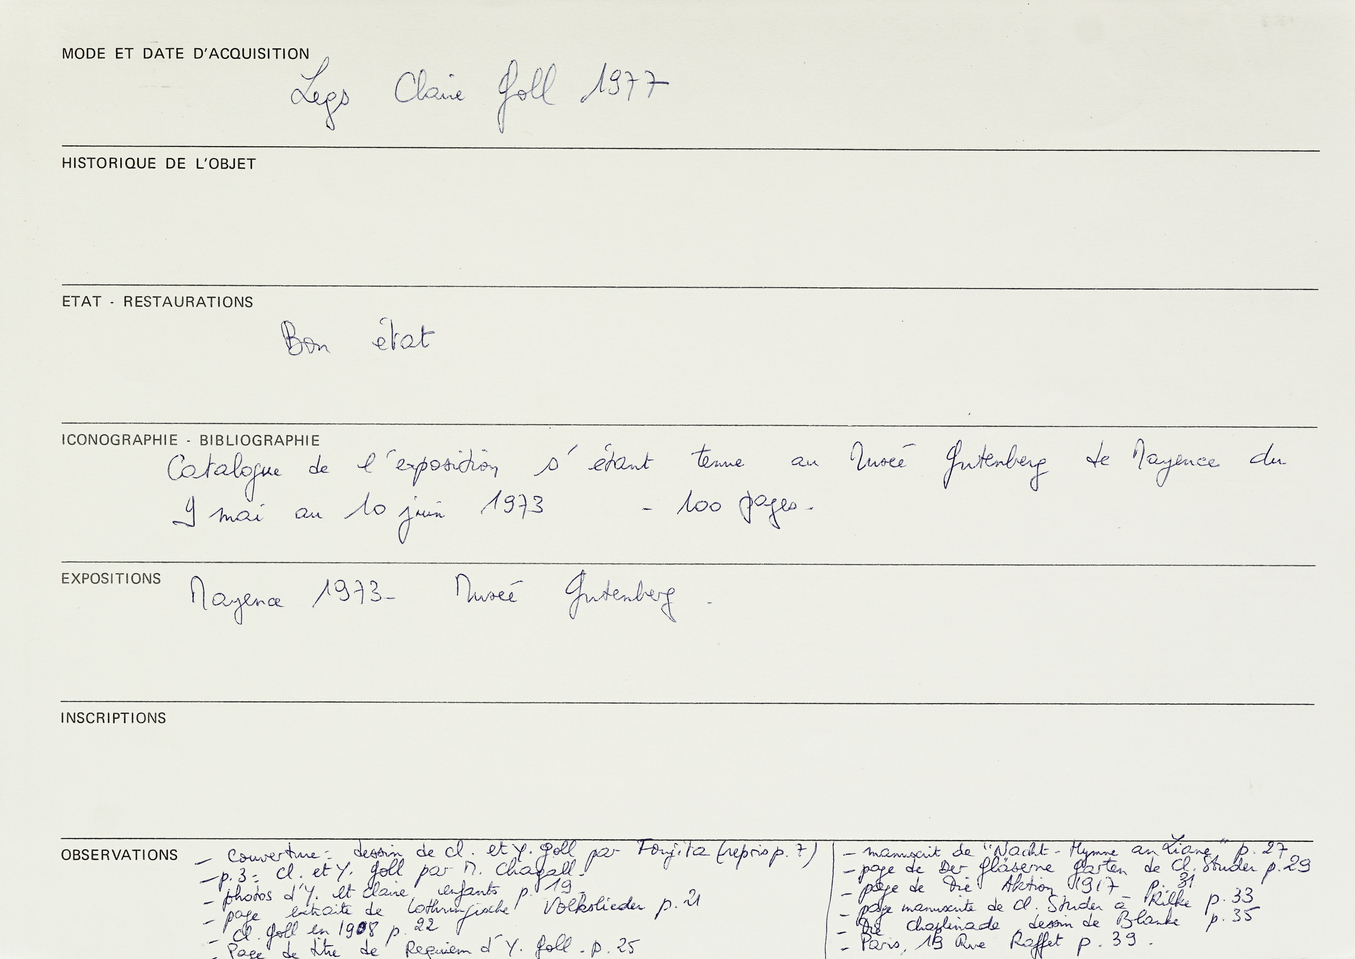 MODE ET DATE D'ACQUISITION
Legs Claire Goll 1977
HISTORIQUE DE L'OBJET
ETAT - RESTAURATIONS
Bon état
ICONOGRAPHIE - BIBLIOGRAPHIE
Catalogue de l'exposition s'étant tenue au Musée Gutenberg de Mayence du
9 mai au 10 juin 1973 - 100 pages.
EXPOSITIONS
Mayence 1973 - Musée Gutenberg.
INSCRIPTIONS
OBSERVATIONS
- Couverture: dessin de Cl. et Y. Goll par Foujita (repris p. 7)
- p.3: Cl. et Y. Goll par M. Chagall.
- photos d'Y. et Claire enfants p. 19.
- page extraite de Lothringische Volkslieder p. 21
- Cl. Goll en 1908 p. 22
- Page de titre de Requiem d'Y. Goll. p. 25
- manuscrit de "Nacht-Hymne an Liane" p. 27
- page de Der gläserne Garten de Cl. Studer p. 29
- page de Die Aktion 1917 p. 31
- page manuscrite de Cl. Studer à Rilke p. 33
- Die Chaplinade dessin de Blanke p. 35
- Paris, 13 Rue Raffet p. 39.